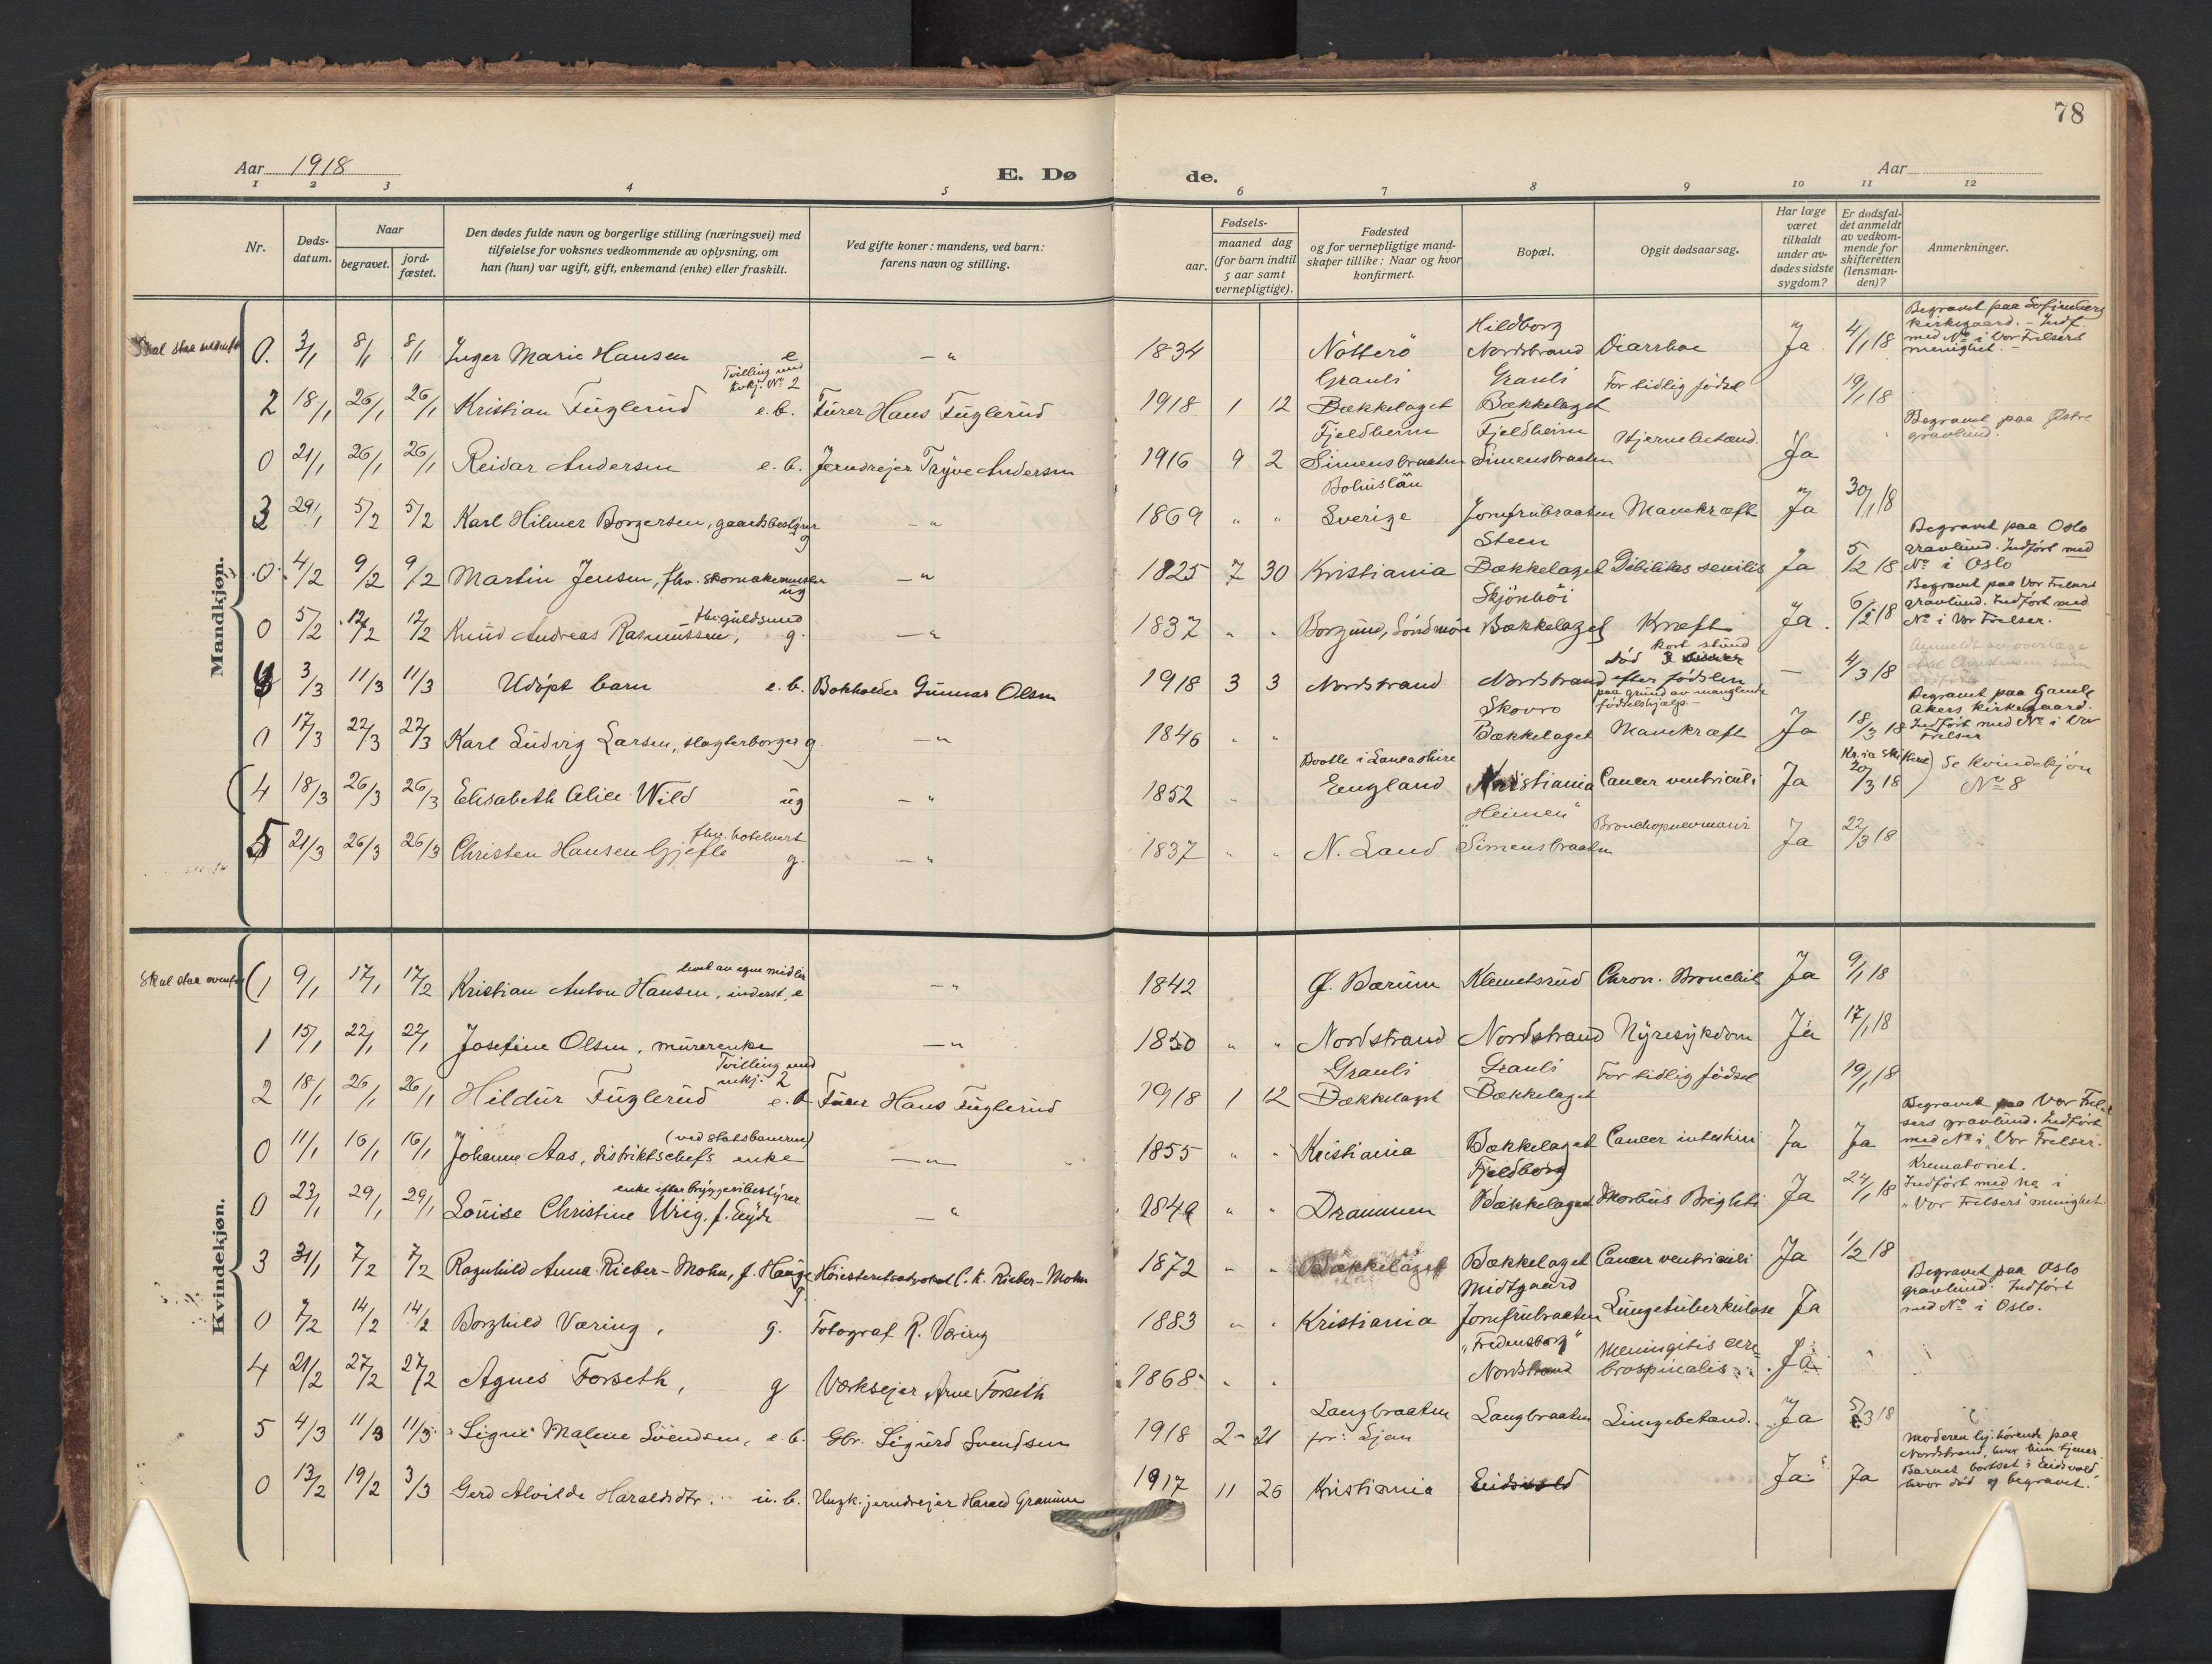 78
Aar 1918
E. Dø
de.
Aar
1 2 3 4 5 6 7 8 9 10 11 12
Nr.
Døds-
datum.
Naar
begravet.
jord-
fæstet.
Den dødes fulde navn og borgerlige stilling (næringsvei) med
tilføielse for voksnes vedkommende av oplysning, om
han (hun) var ugift, gift, enkemand (enke) eller fraskilt.
Ved gifte koner: mandens, ved barn:
farens navn og stilling.
Fødsels-
aar.
maaned dag
(for barn indtil
5 aar samt
vernepligtige).
Fødested
og for vernepligtige mand-
skaper tillike: Naar og hvor
konfirmert.
Bopæl.
Opgit dødsaarsag.
Har læge
været
tilkaldt
under av-
dødes sidste
sygdom?
Er dødsfal-
det anmeldt
av vedkom-
mende for
skifteretten
(lensman-
den)?
Anmerkninger.
Mandkjøn.
Skal staa nedenfor
0. 3/1 8/1 8/1 Inger Marie Hansen e — " 1834 Nötterö Hildborg Nordstrand Diarrhoe Ja 4/1 18
Begravet paa Sofienberg
kirkegaard. - Indf.
med No i Vor Frelsers
menighet. -
Tvilling med
kvkj. No 2
2 18/1 26/1 26/1 Kristian Fuglerud e. b. Furer Hans Fuglerud 1918 1 12 Grauli Bækkelaget Grauli Bækkelaget For tidlig födsel 19/1 18
0 21/1 26/1 26/1 Reidar Andersen e. b. Jerndreier Tryve Andersen 1916 9 2 Fjeldheim Simensbraaten Fjeldheim Simensbraaten Hjernebetænd. Ja
Begravet paa Østre
gravlund.
3 29/1 5/2 5/2 Karl Hilmer Borgersen, gaardsbestyrer g — " 1869 " " Bohuslän Sverige Jomfrubraaten Mavekræft Ja 30/1 18
0 4/2 9/2 9/2 Martin Jensen, fhv. skomakermester ug — " 1825 7 30 Kristiania Steen Bækkelaget Debilitas senilis Ja 5/2 18
Begravet paa Oslo
gravlund. Indført med
No i Oslo
0 5/2 12/2 12/2 Knud Andreas Rasmussen, fhv. guldsmed g. — " 1837 " " Borgund, Söndmöre Skjönhöi Bækkelaget Kræft Ja 6/2 18
Begravet paa Vor Frelsers
gravlund. Indført med
No i Vor Frelser.
3/3 11/3 11/3 Udöpt barn e. b. Bokholder Gunnar Olsen 1918 3 3 Nordstrand Nordstrand
död kort stund
efter födselen
paa grund av manglende
födselshjælp. -
— 4/3 18
Anmeldt av overlæge
0 17/3 22/3 22/3 Karl Ludvig Larsen, slagterborger g — " 1846 " " Skovro Bækkelaget Mavekræft Ja 18/3 18
Begravet paa Gamle
Akers kirkegaard.
Indført med No i Vor
Frelser
(4 18/3 26/3 26/3 Elisabeth Alice Wild ug — " 1852 " Bootle i Lancashire England Kristiania Cancer ventriculi Ja Kr.ia Skifteret 20/3 18
) Se kvindekjön
No 8
5 21/3 26/3 26/3 Christen Hansen Gjefle fhv. hotelvert g. — " 1837 " " N. Land "Heimen" Simensbraaten Bronchopneumoni Ja 22/3 18
Kvindekjøn.
Skal staa ovenfor
(1 9/1 17/1 17/2 Kristian Anton Hansen, inderst, e levet av egne midler — " 1842 Ø. Bærum Klemetsrud Chron. Bronchit Ja 9/1 18
1 15/1 22/1 22/1 Josefine Olsen, murerenke — " 1850 " " Nordstrand Nordstrand Nyresykdom Ja 17/1 18
Tvilling med
mkj. 2
2 18/1 26/1 26/1 Hildur Fuglerud e. b Furer Hans Fuglerud 1918 1 12 Grauli Bækkelaget Grauli Bækkelaget For tidlig födsel 19/1 18
0 11/1 16/1 16/1 Johanne Aas, distriktschefs enke (ved statsbanerne) — " 1855 " " Kristiania Bækkelaget Cancer intestini Ja Ja
Begravet paa Vor Frel-
sers gravlund. Indført
med No i Vor Frelser.
0 23/1 29/1 29/1 Louise Christine Urig. f. Eyde enke efter bryggeribestyrer — " 1849 " " Drammen Fjeldborg Bækkelaget Morbus Brighti Ja 24/1 18
Krematoriet.
Indført med No i
"Vor Frelsers" menighet.
3 31/1 7/2 7/2 Ragnhild Anna Rieber-Mohn, f. Hauge g Höiesteretsadvokat C. K. Rieber-Mohn 1872 " " Bækkelaget Bækkelaget Cancer ventriculi Ja 1/2 18
0 7/2 14/2 14/2 Borghild Væring, g. Fotograf R. Væring 1883 " " Kristiania Midtgaard Jomfrubraaten Lungetuberkulose Ja
Begravet paa Oslo
gravlund. Indført
med No i Oslo.
4 21/2 27/2 27/2 Agnes Forseth, g Værkseier Arne Forseth 1868 " " "Fredensborg" Nordstrand Meningitis cere-
brospinalis Ja
5 4/3 11/3 11/3 Signe Malene Svendsen, e. b. Gbr. Sigurd Svendsen 1918 2 21 Langbraaten pr. Ljan Langbraaten Lungebetænd. Ja 5/3 18
0 13/2 19/2 3/3 Gerd Alvilde Haraldsdtr. u. b. Ungk. jerndreier Harald Gramme 1917 11 26 Kristiania Eidsvold Ja Ja
Moderen hj. hørende paa
Nordstrand, hvor hun tjener.
Barnet bortsat i Eidsvold,
hvor död og begravet.